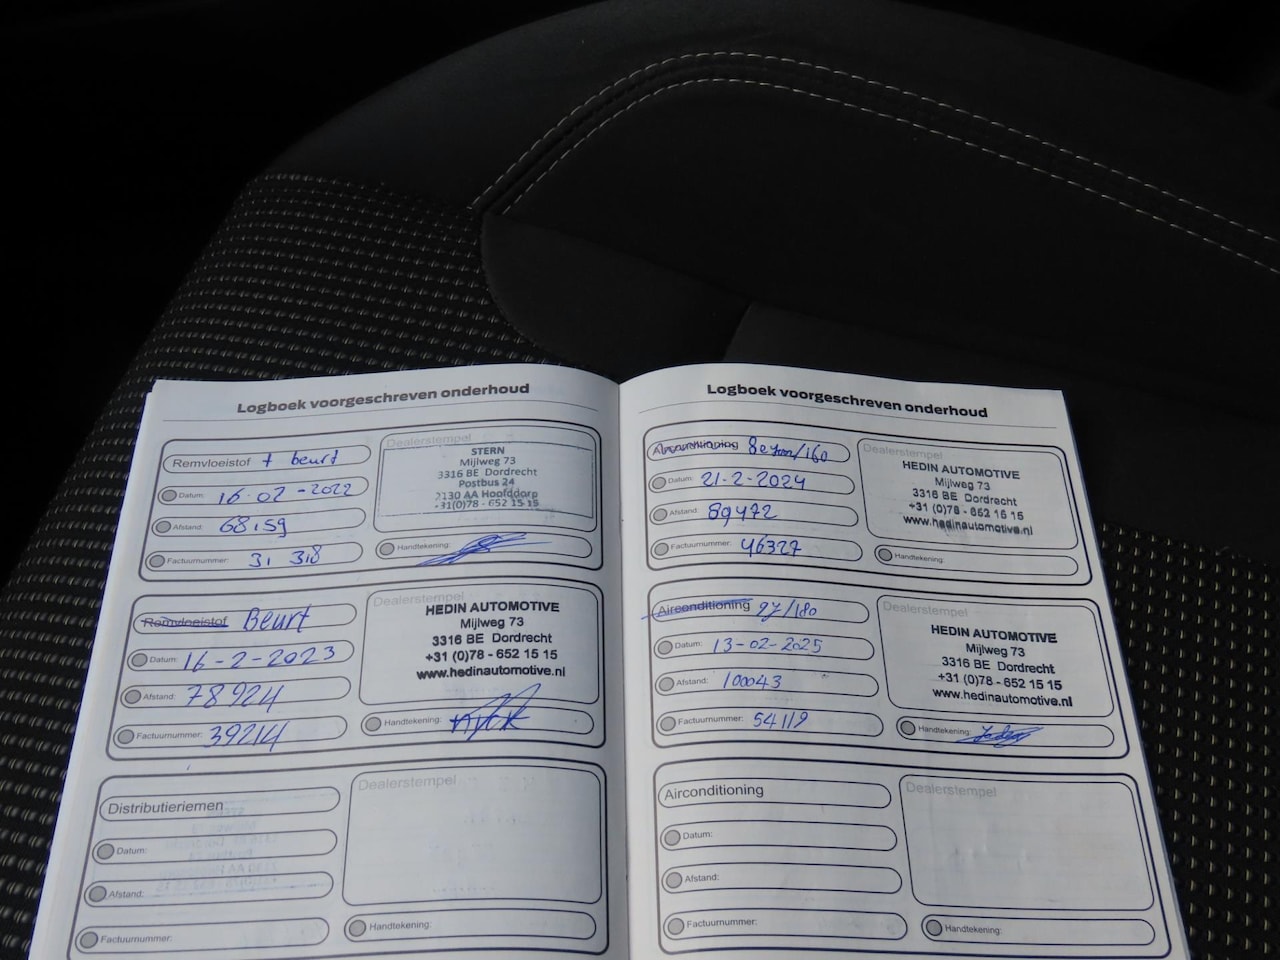 Logboek voorgeschreven onderhoud
Remvloeistof + beurt
Datum: 16-02-2022
Afstand: 68159
Factuurnummer: 31 318
Dealerstempel
STERN
Mijlweg 73
3316 BE Dordrecht
Postbus 24
2130 AA Hoofddorp
+31(0)78 - 652 15 15
Handtekening:
Remvloeistof Beurt
Datum: 16-2-2023
Afstand: 78924
Factuurnummer: 39214
Dealerstempel
HEDIN AUTOMOTIVE
Mijlweg 73
3316 BE Dordrecht
+31 (0)78 - 652 15 15
www.hedinautomotive.nl
Handtekening:
Distributieriemen
Datum:
Afstand:
Factuurnummer:
Dealerstempel
Handtekening:
Logboek voorgeschreven onderhoud
Airconditioning /160
Datum: 21-2-2024
Afstand: 89472
Factuurnummer: 46327
Dealerstempel
HEDIN AUTOMOTIVE
Mijlweg 73
3316 BE Dordrecht
+31 (0)78 - 652 15 15
www.hedinautomotive.nl
Handtekening:
Airconditioning /180
Datum: 13-02-2025
Afstand: 100043
Factuurnummer: 54119
Dealerstempel
HEDIN AUTOMOTIVE
Mijlweg 73
3316 BE Dordrecht
+31 (0)78 - 652 15 15
www.hedinautomotive.nl
Handtekening:
Airconditioning
Datum:
Afstand:
Factuurnummer:
Dealerstempel
Handtekening: